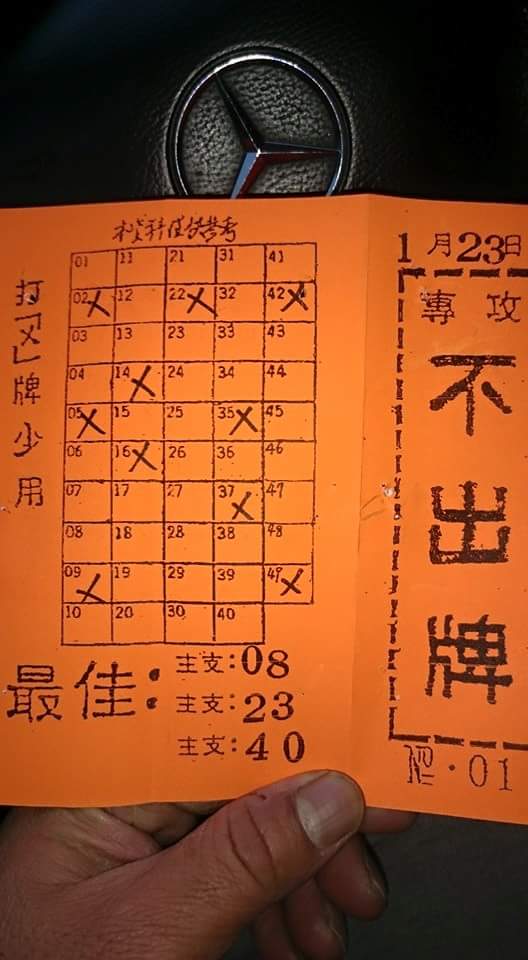 01 11 21 31 41
02 12 22 32 42
03 13 23 33 43
04 14 24 34 44
05 15 25 35 45
06 16 26 36 46
07 17 27 37 47
08 18 28 38 48
09 19 29 39 49
10 20 30 40
打「X」牌少用
最佳：
主支：08
主支：23
主支：40
1月23日
專攻
不出牌
№·01